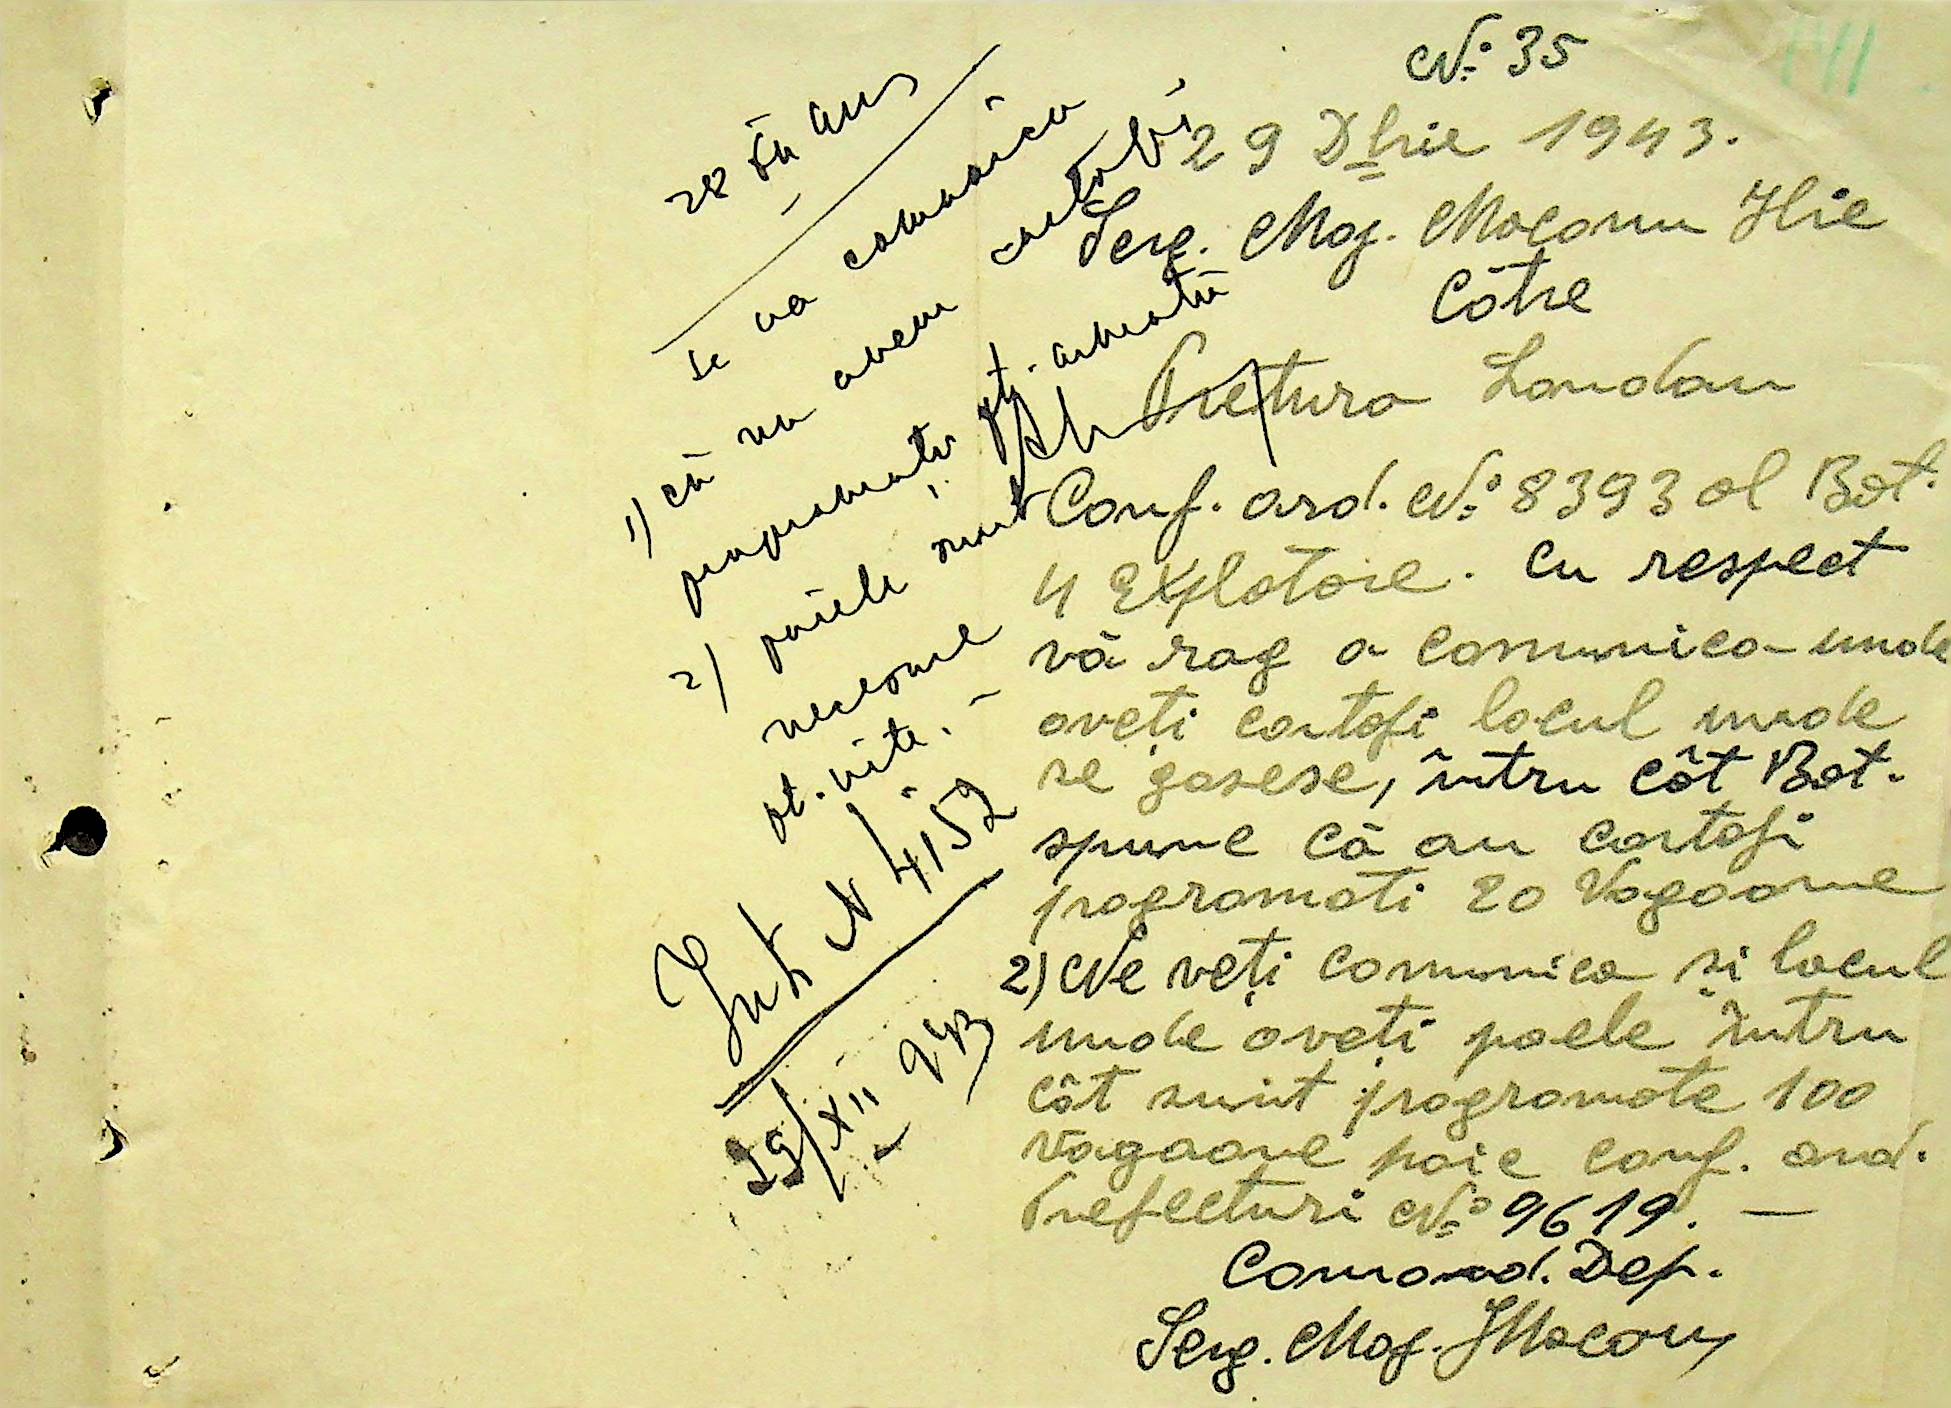 No. 35
29 Dbrie 1943.
Serg. Maj. Mocanu Ilie
Către
Pretura Landau
Conf. ord. No. 8393 al Bat.
4 Explotare. Cu respect
vă rog a comunica unde
aveți cartofi locul unde
se gasesc, întru cât Bat.
spune că au cartofi
programati 20 Vagoane
2) Ne veți comunica și locul
unde aveți paele întru
cât sunt programate 100
vagoane paie conf. ord.
Prefecturi No. 9619. —
Comand. Dep.
Serg. Maj. IMocanu
se va comunica
1) că nu avem cartofi
programați pt. armată
2) paiele sunt
necesare
pt. vite. —
Int. N 4152
29/XII 943